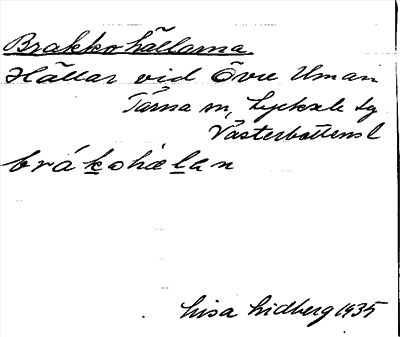 Brakkohällarna
Hällar vid Övre Uman
Tärna sn, Lycksele tg
Västerbottens l
brákohælan
Lisa Lidberg 1935